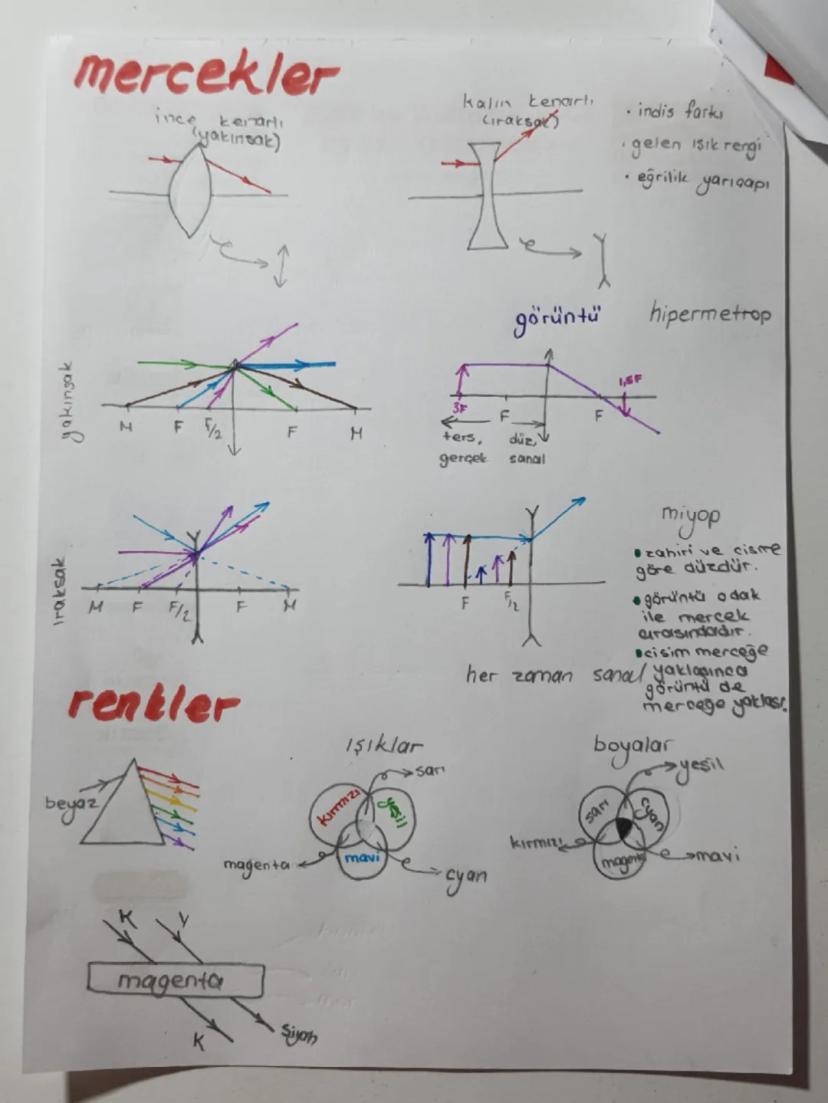 mercekler
ince kenarlı
(yakınsak)
kalın kenarlı
(ıraksak)
• indis farkı
• gelen ışık rengi
• eğrilik yarıçapı
görüntü
hipermetrop
yakınsak
M F F/2 F M
3F F F 1,5F
ters, düz,
gerçek sanal
ıraksak
M F F/2 F M
F F/2
miyop
• zahiri ve cisme
göre düzdür.
• görüntü odak
ile mercek
arasındadır.
• cisim merceğe
yaklaşınca
görüntü de
merceğe yaklaşır.
her zaman sanal
renkler
beyaz
ışıklar
sarı
kırmızı
yeşil
mavi
magenta
cyan
boyalar
yeşil
sarı
cyan
kırmızı
magenta
mavi
K Y
magenta
K
Siyah